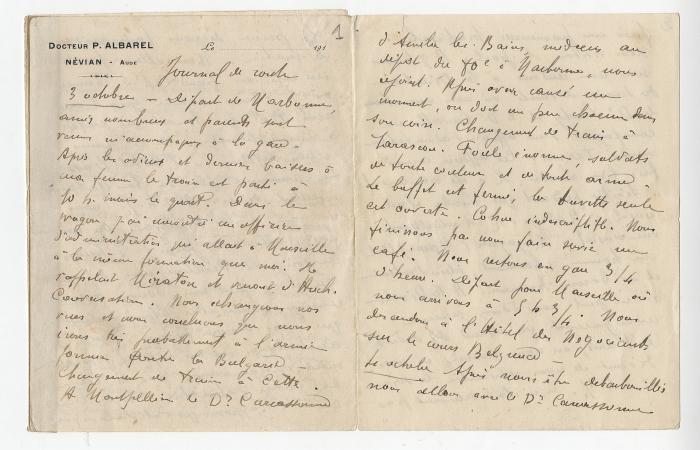 DOCTEUR P. ALBAREL
NÉVIAN - AUDE
Le 191
1
Journal de route
3 octobre – Départ de Narbonne,
amis nombreux et parents sont
venus m'accompagner à la gare.
Après les adieux et derniers baisers à
ma femme le train est parti à
10 h. moins le quart. Dans le
wagon j'ai rencontré un officier
d'administration qui allait à Marseille
à la même formation que moi. Il
s'appelait Mératon et venait d'Auch.
Conversation. Nous échangeons nos
vues et nous concluons que nous
irons très probablement à l'armée
formée contre la Bulgarie –
Changement de train à Cette.
A Montpellier le Dr Carcassonne
d'Amélie les Bains, médecin au
dépôt du 80e à Narbonne, nous
rejoint. Après avoir causé un
moment, on dort un peu chacun dans
son coin. Changement de train à
Tarascon. Foule énorme, soldats
de toute couleur et de toute arme.
Le buffet est fermé, la buvette seule
est ouverte. Cohue indescriptible. Nous
finissons par nous faire servir un
café. Nous restons en gare 3/4
d'heure. Départ pour Marseille où
nous arrivons à 5 h 3/4. Nous
descendons à l'Hôtel des Négociants
sur le cours Belzunce –
4 octobre Après nous être débarbouillés
nous allons avec le Dr Carcassonne